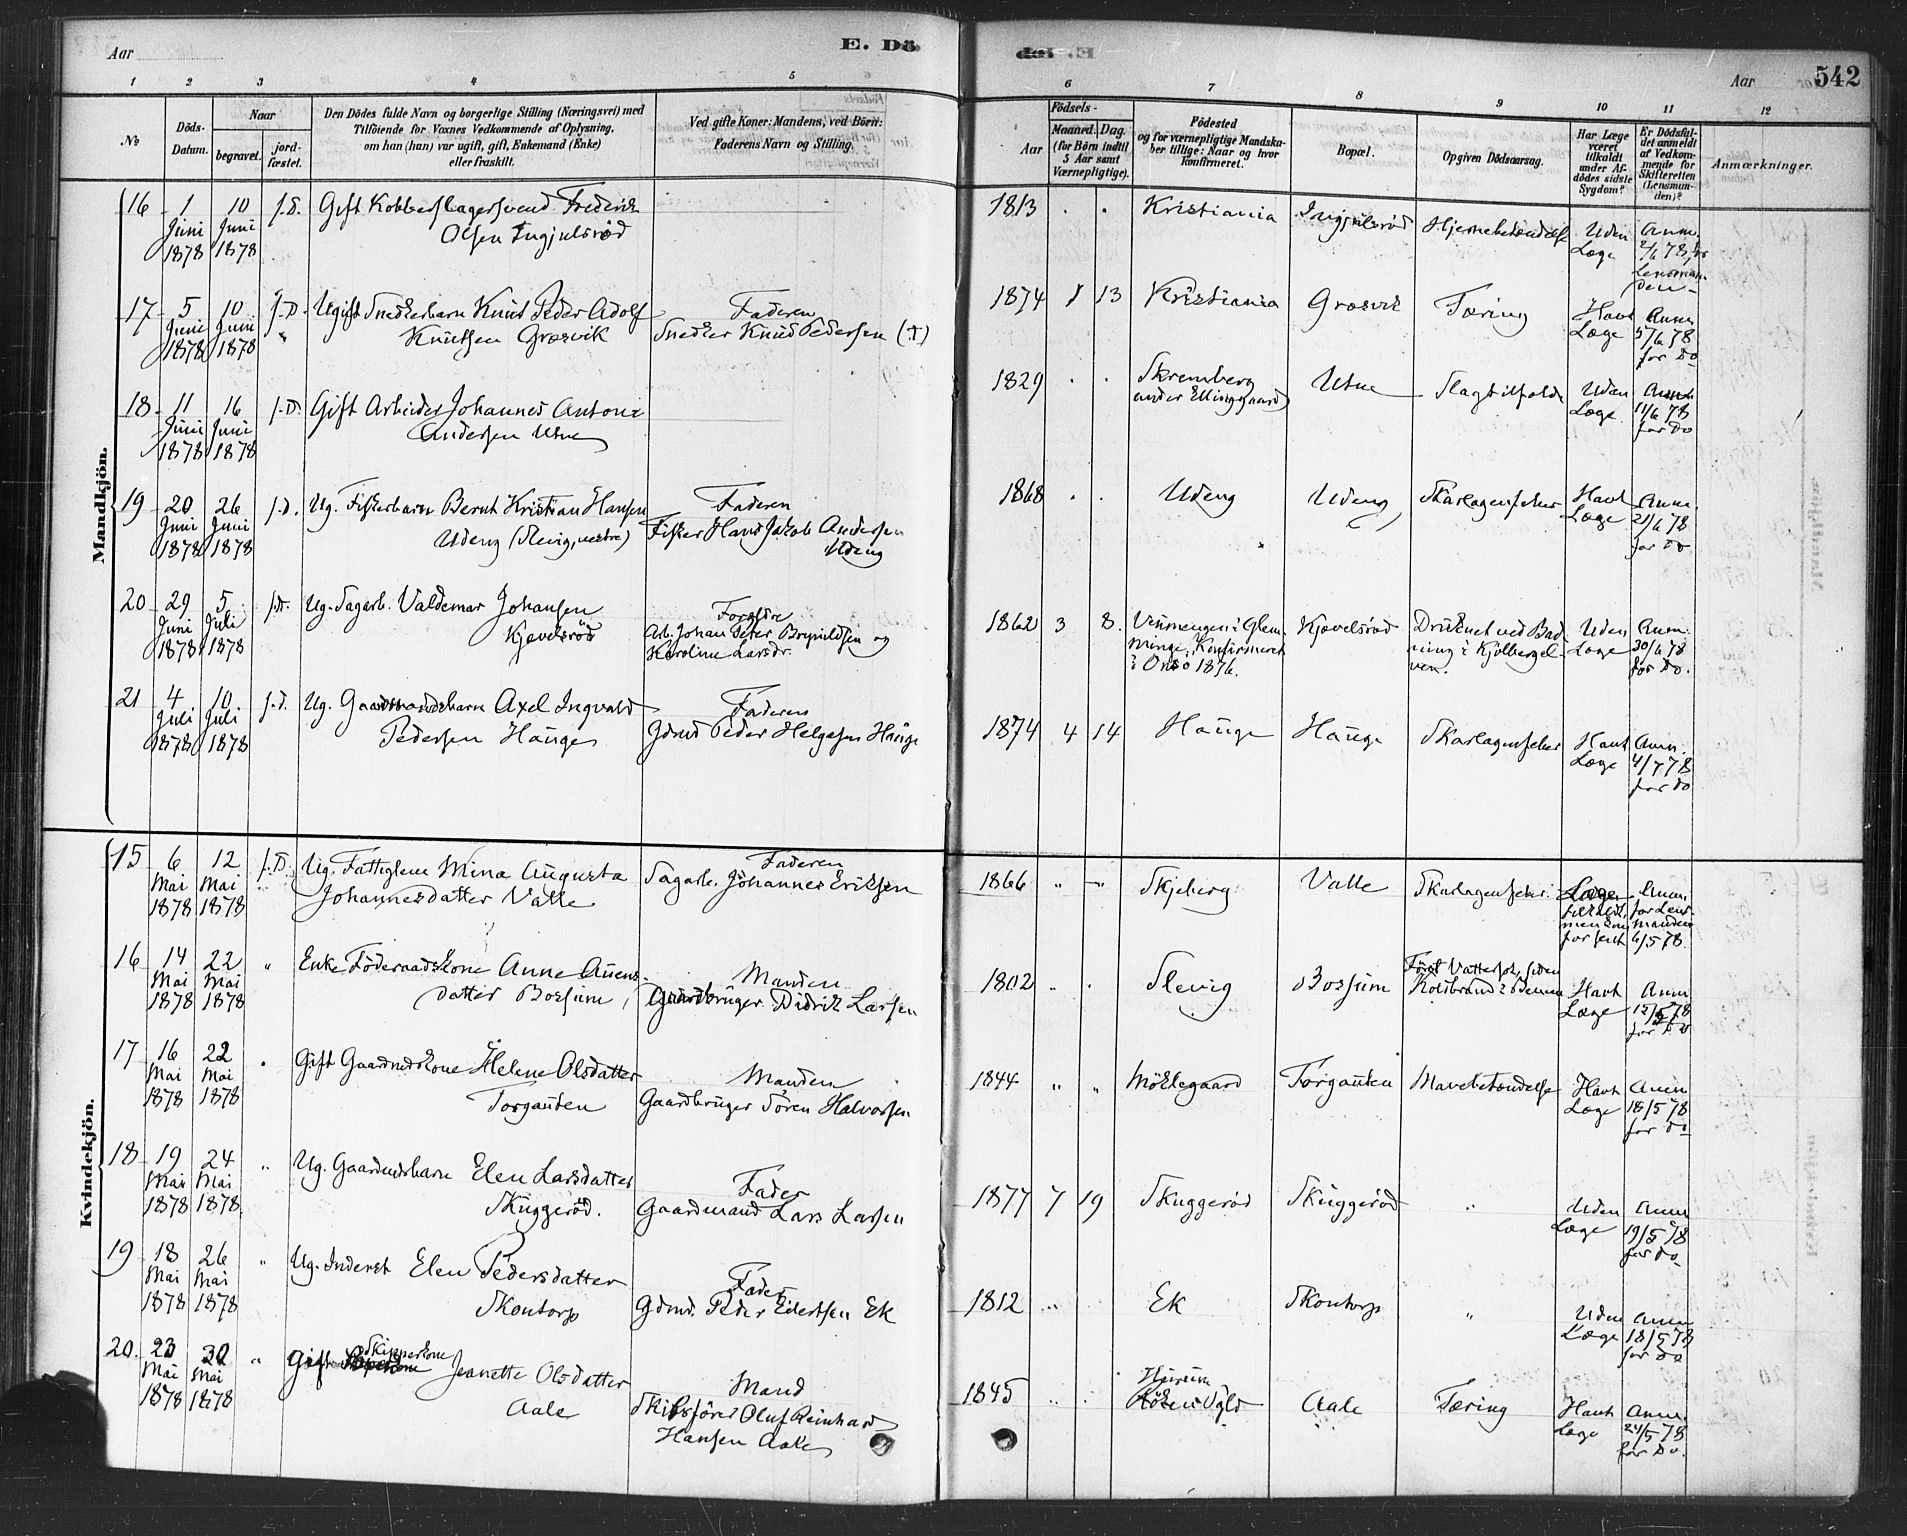 Aar
E. Dö
542
Aar
1 2 3 4 5 6 7 8 9 10 11 12
No
Döds-
Datum.
Naar
begravet.
jord-
fæstet.
Den Dödes fulde Navn og borgerlige Stilling (Næringsvei) med
Tilföiende for Voxnes Vedkommende af Oplysning,
om han (hun) var ugift, gift, Enkemand (Enke)
eller fraskilt.
Ved gifte Koner: Mandens, ved Börn:
Faderens Navn og Stilling.
Födsels-
Aar
Maaned.
Dag.
(for Börn indtil
5 Aar samt
Værnepligtige).
Födested
og for værnepligtige Mandska-
ber tillige: Naar og hvor
konfirmeret.
Bopæl.
Opgiven Dödsaarsag.
Har Læge
været
tilkaldt
under Af-
dödes sidste
Sygdom?
Er Dödsfal-
det anmeldt
af Vedkom-
mende for
Skifteretten
(Lensman-
den)?
Anmærkninger.
Mandkjön.
16 1 Juni 1878 10 Juni 1878 f.D. Gift Kobberslagersvend Frederik
Olsen Ingjulsröd
1813 Kristiania Ingjulsröd Hjernebetændelse Uden Læge Anm. 2/6 78 for Lensman-
den
17 5 Juni 1878 10 Juni 1878 f.D. Ugift Snedkerbarn Knut Peder Adolf
Knutsen Græsvik
Faderen
Snedker Knud Pedersen (D)
1874 1 13 Kristiania Græsvik Tæring Havt Læge Anm 5/6 78 for Do
18 11 Juni 1878 16 Juni 1878 f.D. Gift Arbeider Johannes Antoni
Andersen Utne
1829 Skremberg
under Ellinggaard Utne Slagtilfælde Uden Læge Anm 11/6 78 for Do
19 20 Juni 1878 26 Juni 1878 f.d. Ug. Fiskerbarn Bernt Kristian Hansen
Udeng (Slevig, vestre)
Faderen
Fisker Hans Jakob Andersen
Udeng
1868 Udeng Udeng Skarlagensfeber Havt Læge Anm. 21/6 78 for Do
20 29 Juni 1878 5 Juli 1878 f.D. Ug. Sagarb. Valdemar Johansen
Kjævelsröd
Forældre
Arb. Johan Peter Brynildsen og
Karoline Larsdr.
1862 3 8. i Glem-
minge, Konfirmeret
i Onsö 1876. Kjævelsröd Druknet ved Bad-
ning i Kjölbergel-
ven. Uden Læge Anm. 30/6 78 for Do.
21 4 Juli 1878 10 Juli 1878 f.d. Ug. Gaardmandsbarn Axel Ingvald
Pedersen Hauge
Faderen
Gdmd Peder Helgesen Hauge
1874 4 14 Hauge Hauge Skarlagensfeber Havt Læge Anm. 4/7 78 for Do
Kvindekjön.
15 6 Mai 1878 12 Mai 1878 f.D. Ug. Fattiglem Mina Augusta
Johannesdatter Valle
Faderen
Sagarb. Johannes Eriksen
1866 " " Skjeberg Valle Skarlagensfeber. Læge
tilkaldt,
men kom
for sent Anm.
for Lens-
manden
6/5 78.
16 14 Mai 1878 22 Mai 1878 " Enke Föderaadskone Anne Auens-
datter Bossum,
Manden
Gaardbruger Didrik Larsen
1802 " Slevig Bossum Först Vattersot, siden
Koldbrand i Benen Havt Læge Anm 15/5 78 for Do
17 16 Mai 1878 22 Mai 1878 " Gift Gaardmdskone Helene Olsdatter
Torgauten
Manden
Gaardbruger Sören Halvorsen
1844 " " Möklegaard Torgauten Mavebetændelse Havt Læge Anm 18/5 78 for Do
18 19 Mai 1878 24 Mai 1878 " Ug. Gaardmdsbarn Elen Larsdatter
Skuggeröd.
Fader
Gaardmand Lars Larsen
1877 7 19 Skuggeröd Skuggeröd " Uden Læge Anm 19/5 78 for Do
19 18 Mai 1878 26 Mai 1878 " Ug. Inderst Elen Pedersdatter
Skontorp
Fader
Gdmd. Peder Eilertsen Ek
1812 " Ek Skontorp " Uden Læge Anm 18/5 78 for Do
20. 23 Mai 1878 30 Mai 1878 " Gift Skipperkone Jeanette Olsdatter
Aale
Mand
Skibsförer Oluf Reinhard
Hansen Aale
1845 " Aale Tæring Havt Læge Anm. 24/5 78 for Do.